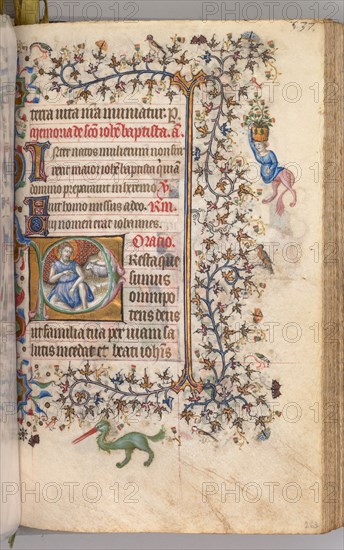 537.
terra vita nra muniatur. p
Memoria de sco iohe baptista. a
Inter natos mulierum non sur
rexit maior iohe baptista qui a
domino preparauit in heremo. V
Fuit homo missus a deo. Rm
cui nomen erat iohannes.
Oracio.
Presta que
sumus
omnipo
tens deus
ut familia tua per uiam sa
lutis incedat et beati iohis
PHOTO12